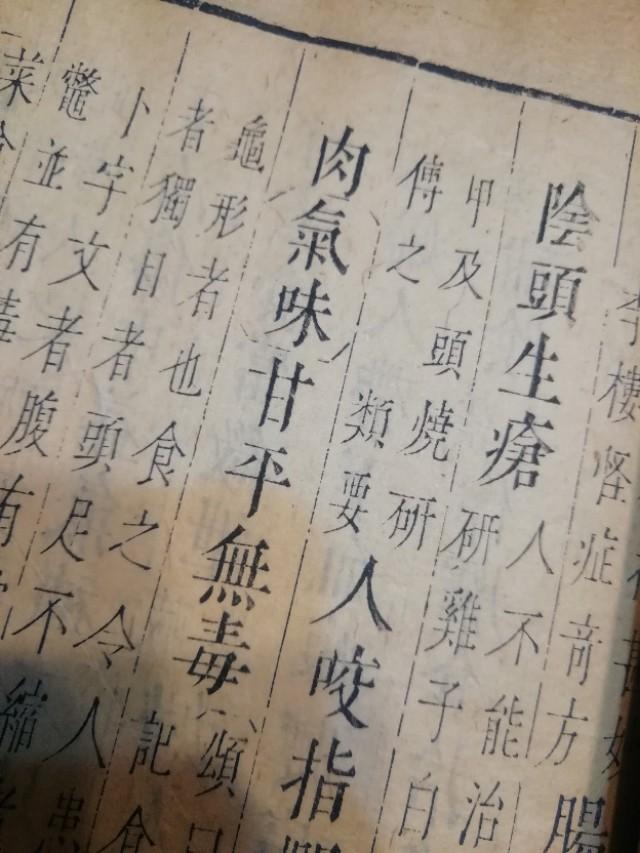 李樓怪症奇方
陰頭生瘡 人不能治
研雞子白
甲及頭燒研
傅之 類要 人咬指
肉氣味甘平無毒 頌曰
記食
龜形者也食之令人患
者獨目者頭足不縮
卜字文者腹有
鼈並有毒
菜